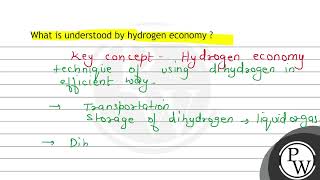 What is understood by hydrogen economy ?
Key concept - Hydrogen economy
technique of using dihydrogen in
efficient way.
→ Transportation
Storage of dihydrogen → liquid or gas
→ Dih
PW